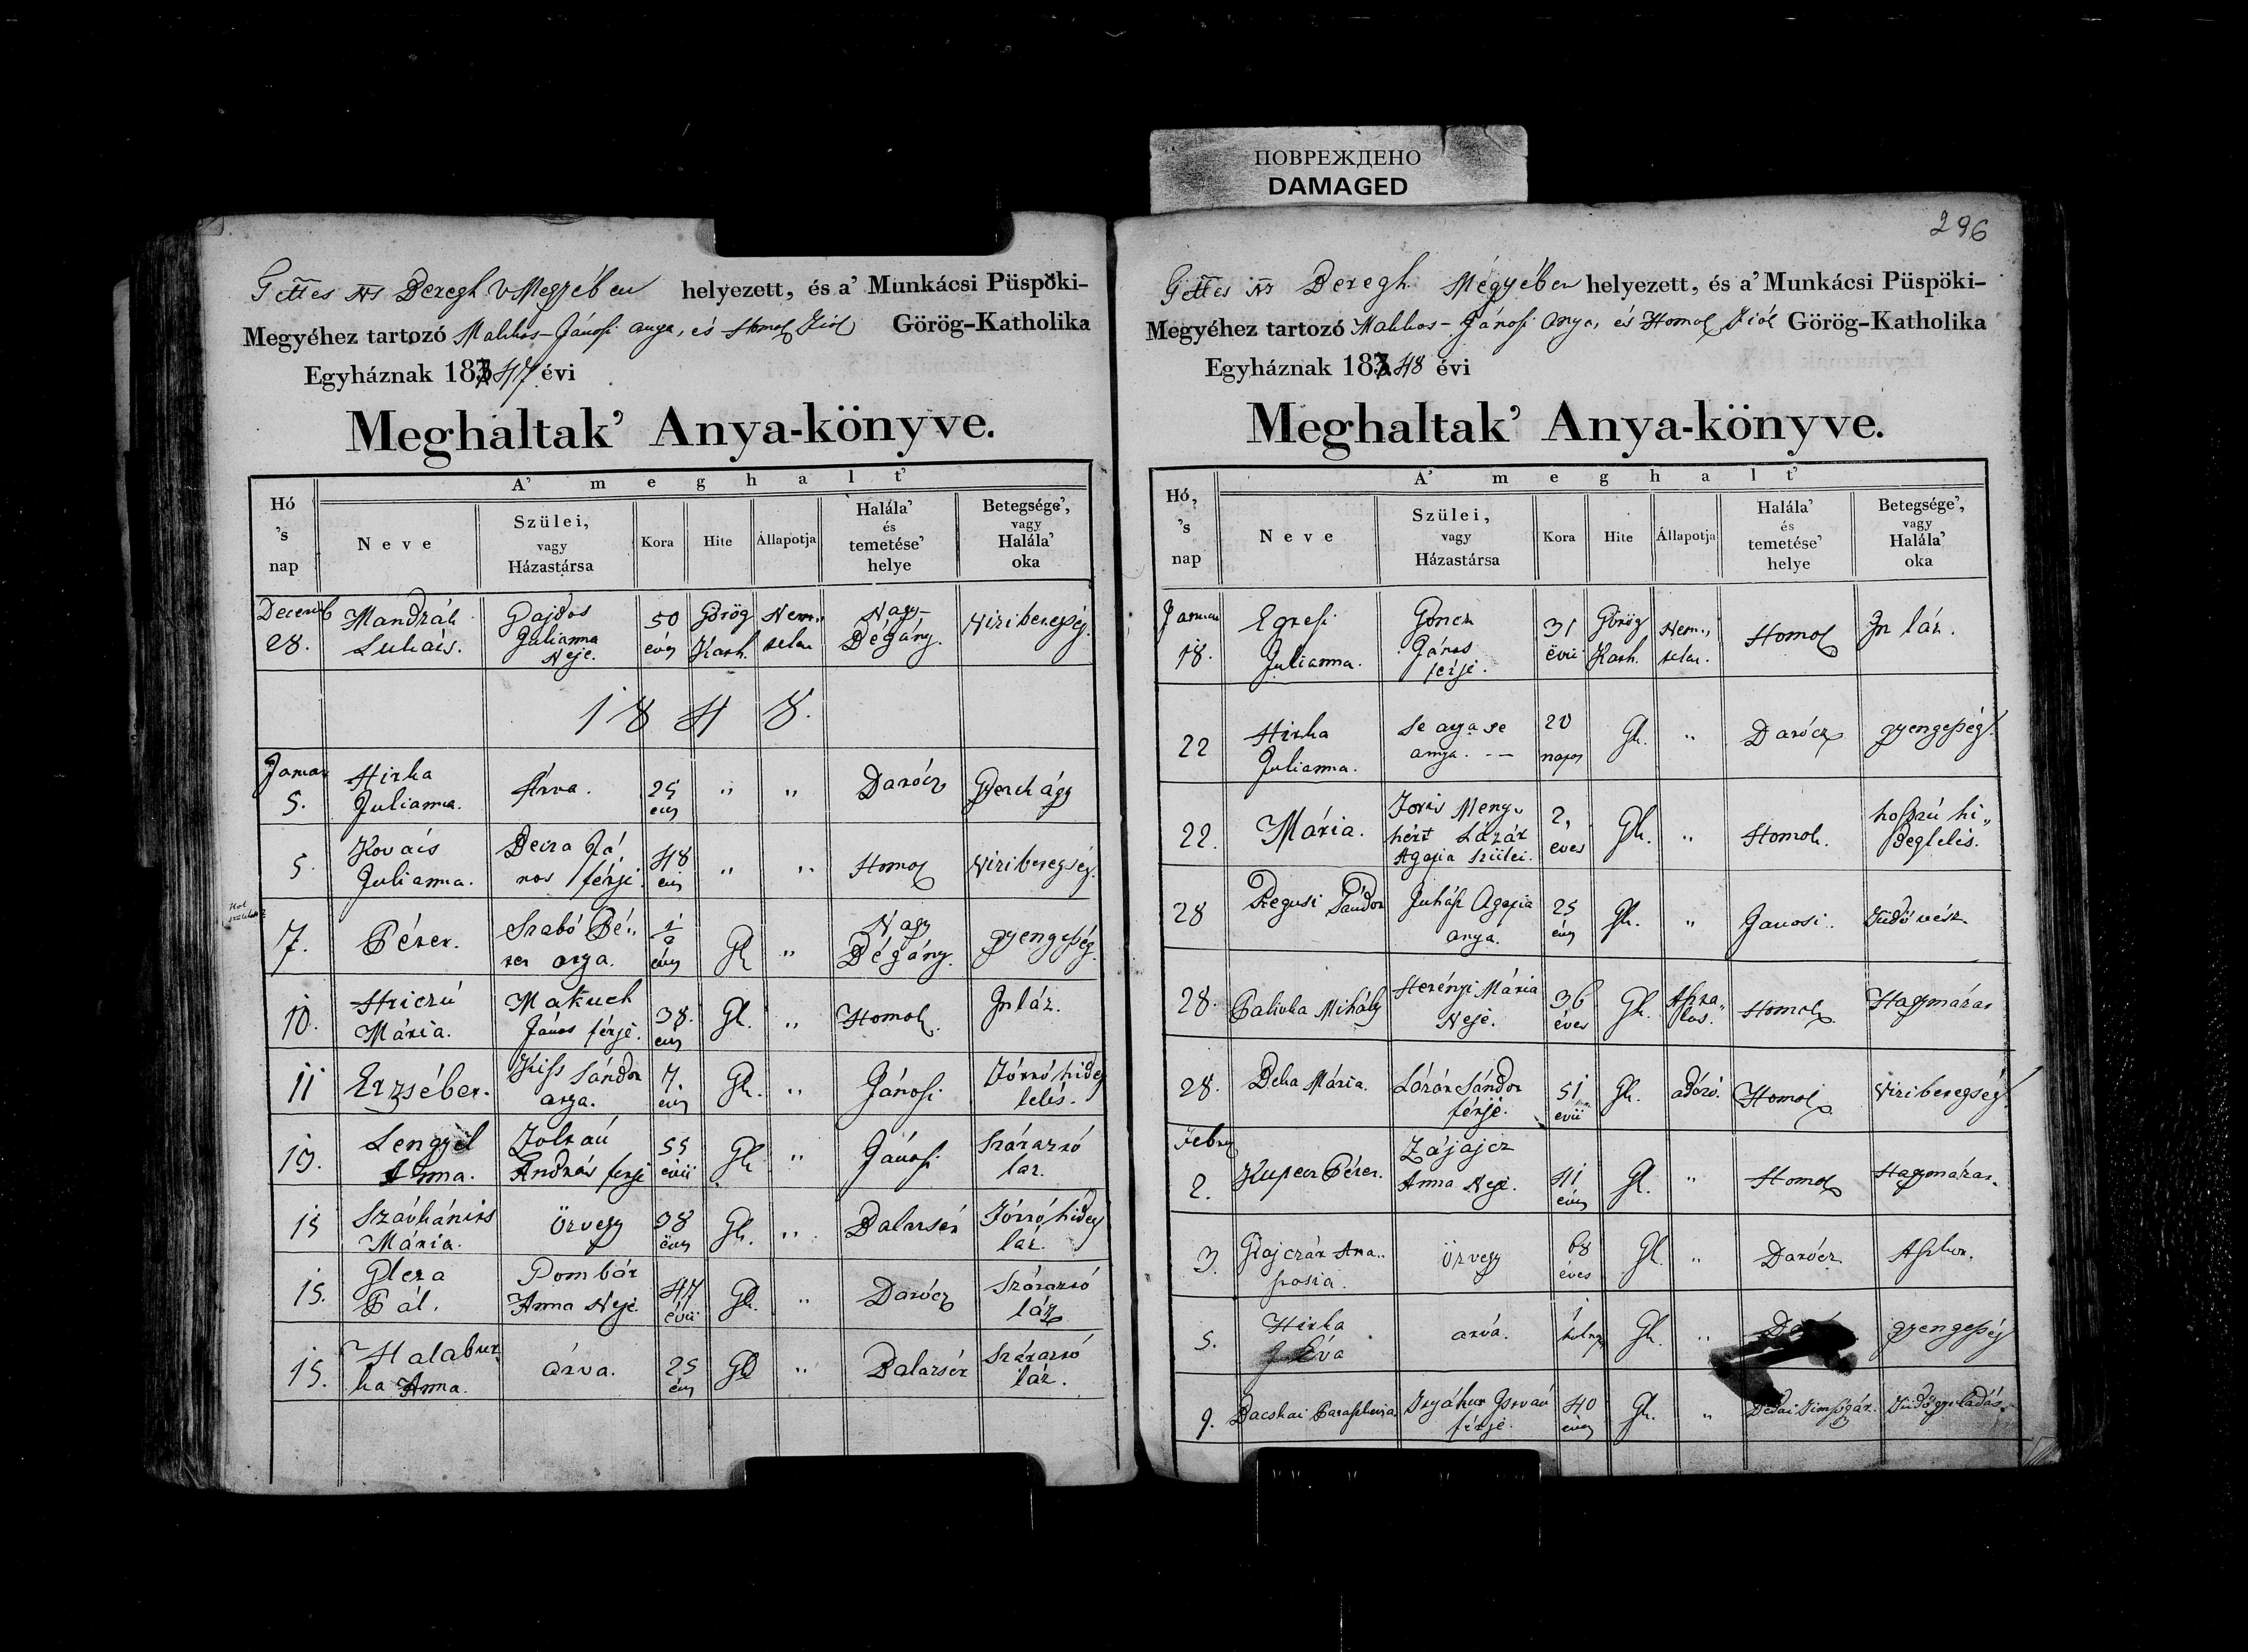 ПОВРЕЖДЕНО
DAMAGED
Beregh Megyében helyezett, és a' Munkácsi Püspöki-
Megyéhez tartozó Makkos-Jánosi anya, és Homok Fiók Görög-Katholika
Egyháznak 1847 évi
Meghaltak' Anya-könyve.
A' meghalt'
Hó 's nap
Neve
Szülei, vagy Házastársa
Kora
Hite
Állapotja
Halála' és temetése' helye
Betegsége', vagy Halála' oka
Decemb 28. Mandrák Lukács. Gajdos Julianna Neje. 50 éves Görög Kath. Nem., telen Nagy-Bégány. Vizibetegség.
1848.
Januar 5. Hirka Julianna. Árva. 25 éves " " Darócz Gyerekágy
5. Kovács Julianna. János férje 48 " " Homok Vizibetegség.
7. Péter. Szabó Péter atya. 1/2 éves Gk " Nagy Bégány. gyengeség.
10. Hriczú Mária. Makuch János férje. 38. Gk. " Homok. In láz.
11 Erzsébet. Kiss Sándor atya. 7. Gk. " Jánosi Forró hideg lelés.
13. Lengyel Anna. Zoltán András férje 55 évü Gk " Jánosi Szárazsó láz.
15 Mária. Özvegy 38 Gk. " Balazsér Forró hideg láz.
15. Pál. Dombár Anna Neje. 47 évü Gk. " Darócz Szárazsó láz
15. Halabur ka Anna. árva. 25 Gk " Balazsér Szárazsó láz.
296
Beregh Megyében helyezett, és a' Munkácsi Püspöki-
Megyéhez tartozó Makkos-Jánosi Anya, és Homok Fiók Görög-Katholika
Egyháznak 1848 évi
Meghaltak' Anya-könyve.
A' meghalt'
Hó, 's nap
Neve
Szülei, vagy Házastársa
Kora
Hite
Állapotja
Halála' és temetése' helye
Betegsége', vagy Halála' oka
18. Egresi Julianna. Goncz János férje. 31 évü Görög Kath. Nem., telen. Homok In láz.
22 Hirka Julianna. Se atya se anya. 20 napos Gk. " Darócz gyengeség.
22. Mária. Foris Meny., hért Lázár Agapia Szülei. 2, éves Gk. " Homok. hosszú hi., deglelés.
28 Sándor Juhász Agapia anya. 25 éves Gk. " Janosi. Tüdő vész
28. Palivka Mihály Herényi Mária Neje. 36 éves Gk. Homok. Hagymáz
28. Beka Mária. Lázár Sándor férje. 51 évü Gk. adózó. Homok Vizibetegség
2. Péter. Zájajcz Anna Neje. 41 éves Gk. " Homok Hagymáz.
3. Grajczár Ana.. Özvegy 68 éves Gk. " Darócz
5. Hirka Éva arva. 1 Gk. " gyengeség
9. István férje. 40 éves Gk. "